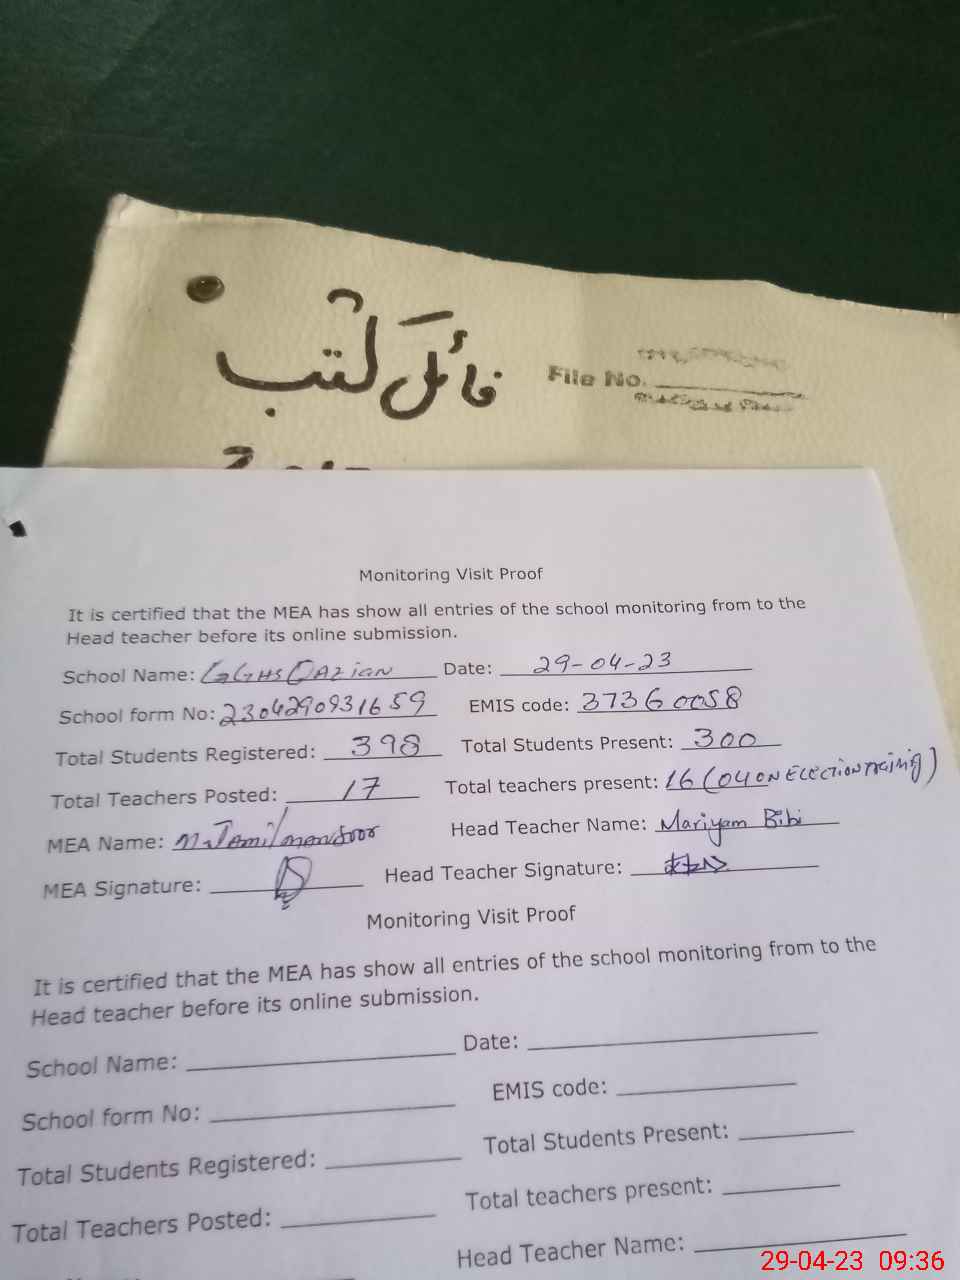 فائل کتب
File No.
Monitoring Visit Proof
It is certified that the MEA has show all entries of the school monitoring from to the
Head teacher before its online submission.
School Name: GGHS QAZIAN Date: 29-04-23
School form No: 2304290931659 EMIS code: 37360058
Total Students Registered: 398 Total Students Present: 300
Total Teachers Posted: 17 Total teachers present: 16 (04 ON ELECTION TRAINING)
MEA Name: Head Teacher Name: Mariyam Bibi
MEA Signature: Head Teacher Signature:
Monitoring Visit Proof
It is certified that the MEA has show all entries of the school monitoring from to the
Head teacher before its online submission.
School Name: Date:
School form No: EMIS code:
Total Students Registered: Total Students Present:
Total Teachers Posted: Total teachers present:
Head Teacher Name:
29-04-23 09:36